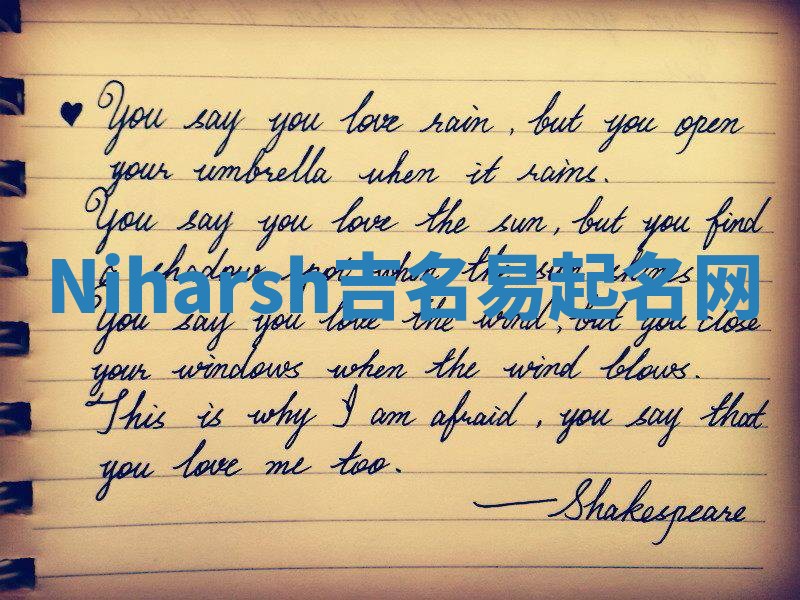 ♥ You say you love rain, but you open
your umbrella when it rains.
You say you love the sun, but you find
a shadow spot when the sun shines
Niharsh吉名易起名网
You say you love the wind, but you close
your windows when the wind blows.
This is why I am afraid, you say that
you love me too.
—Shakespeare